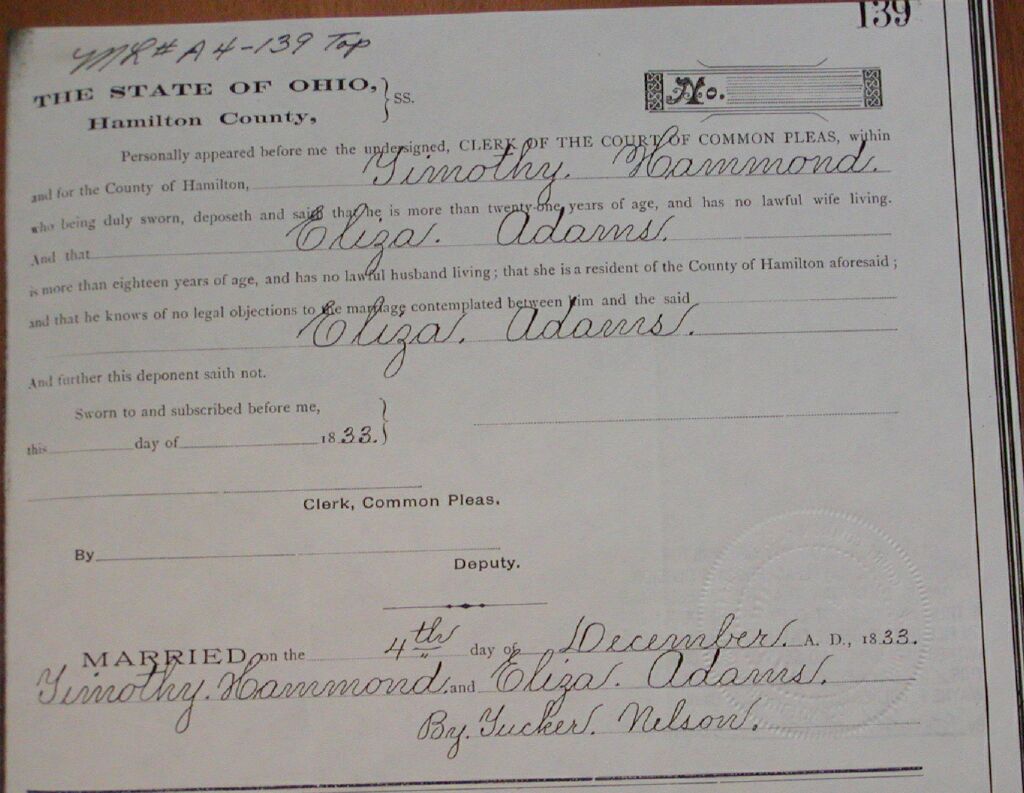 139
ML # A4-139 Top
THE STATE OF OHIO,
Hamilton County, } SS.
No.
Personally appeared before me the undersigned, CLERK OF THE COURT OF COMMON PLEAS, within
and for the County of Hamilton, Timothy. Hammond.
who being duly sworn, deposeth and saith that he is more than twenty-one years of age, and has no lawful wife living.
And that Eliza. Adams.
is more than eighteen years of age, and has no lawful husband living; that she is a resident of the County of Hamilton aforesaid;
and that he knows of no legal objections to the marriage contemplated between him and the said
Eliza. Adams.
And further this deponent saith not.
Sworn to and subscribed before me,
this day of 1833.
Clerk, Common Pleas.
By
Deputy.
MARRIED on the 4th day of December. A. D., 1833.
Timothy. Hammond. and Eliza. Adams.
By. Tucker. Nelson.